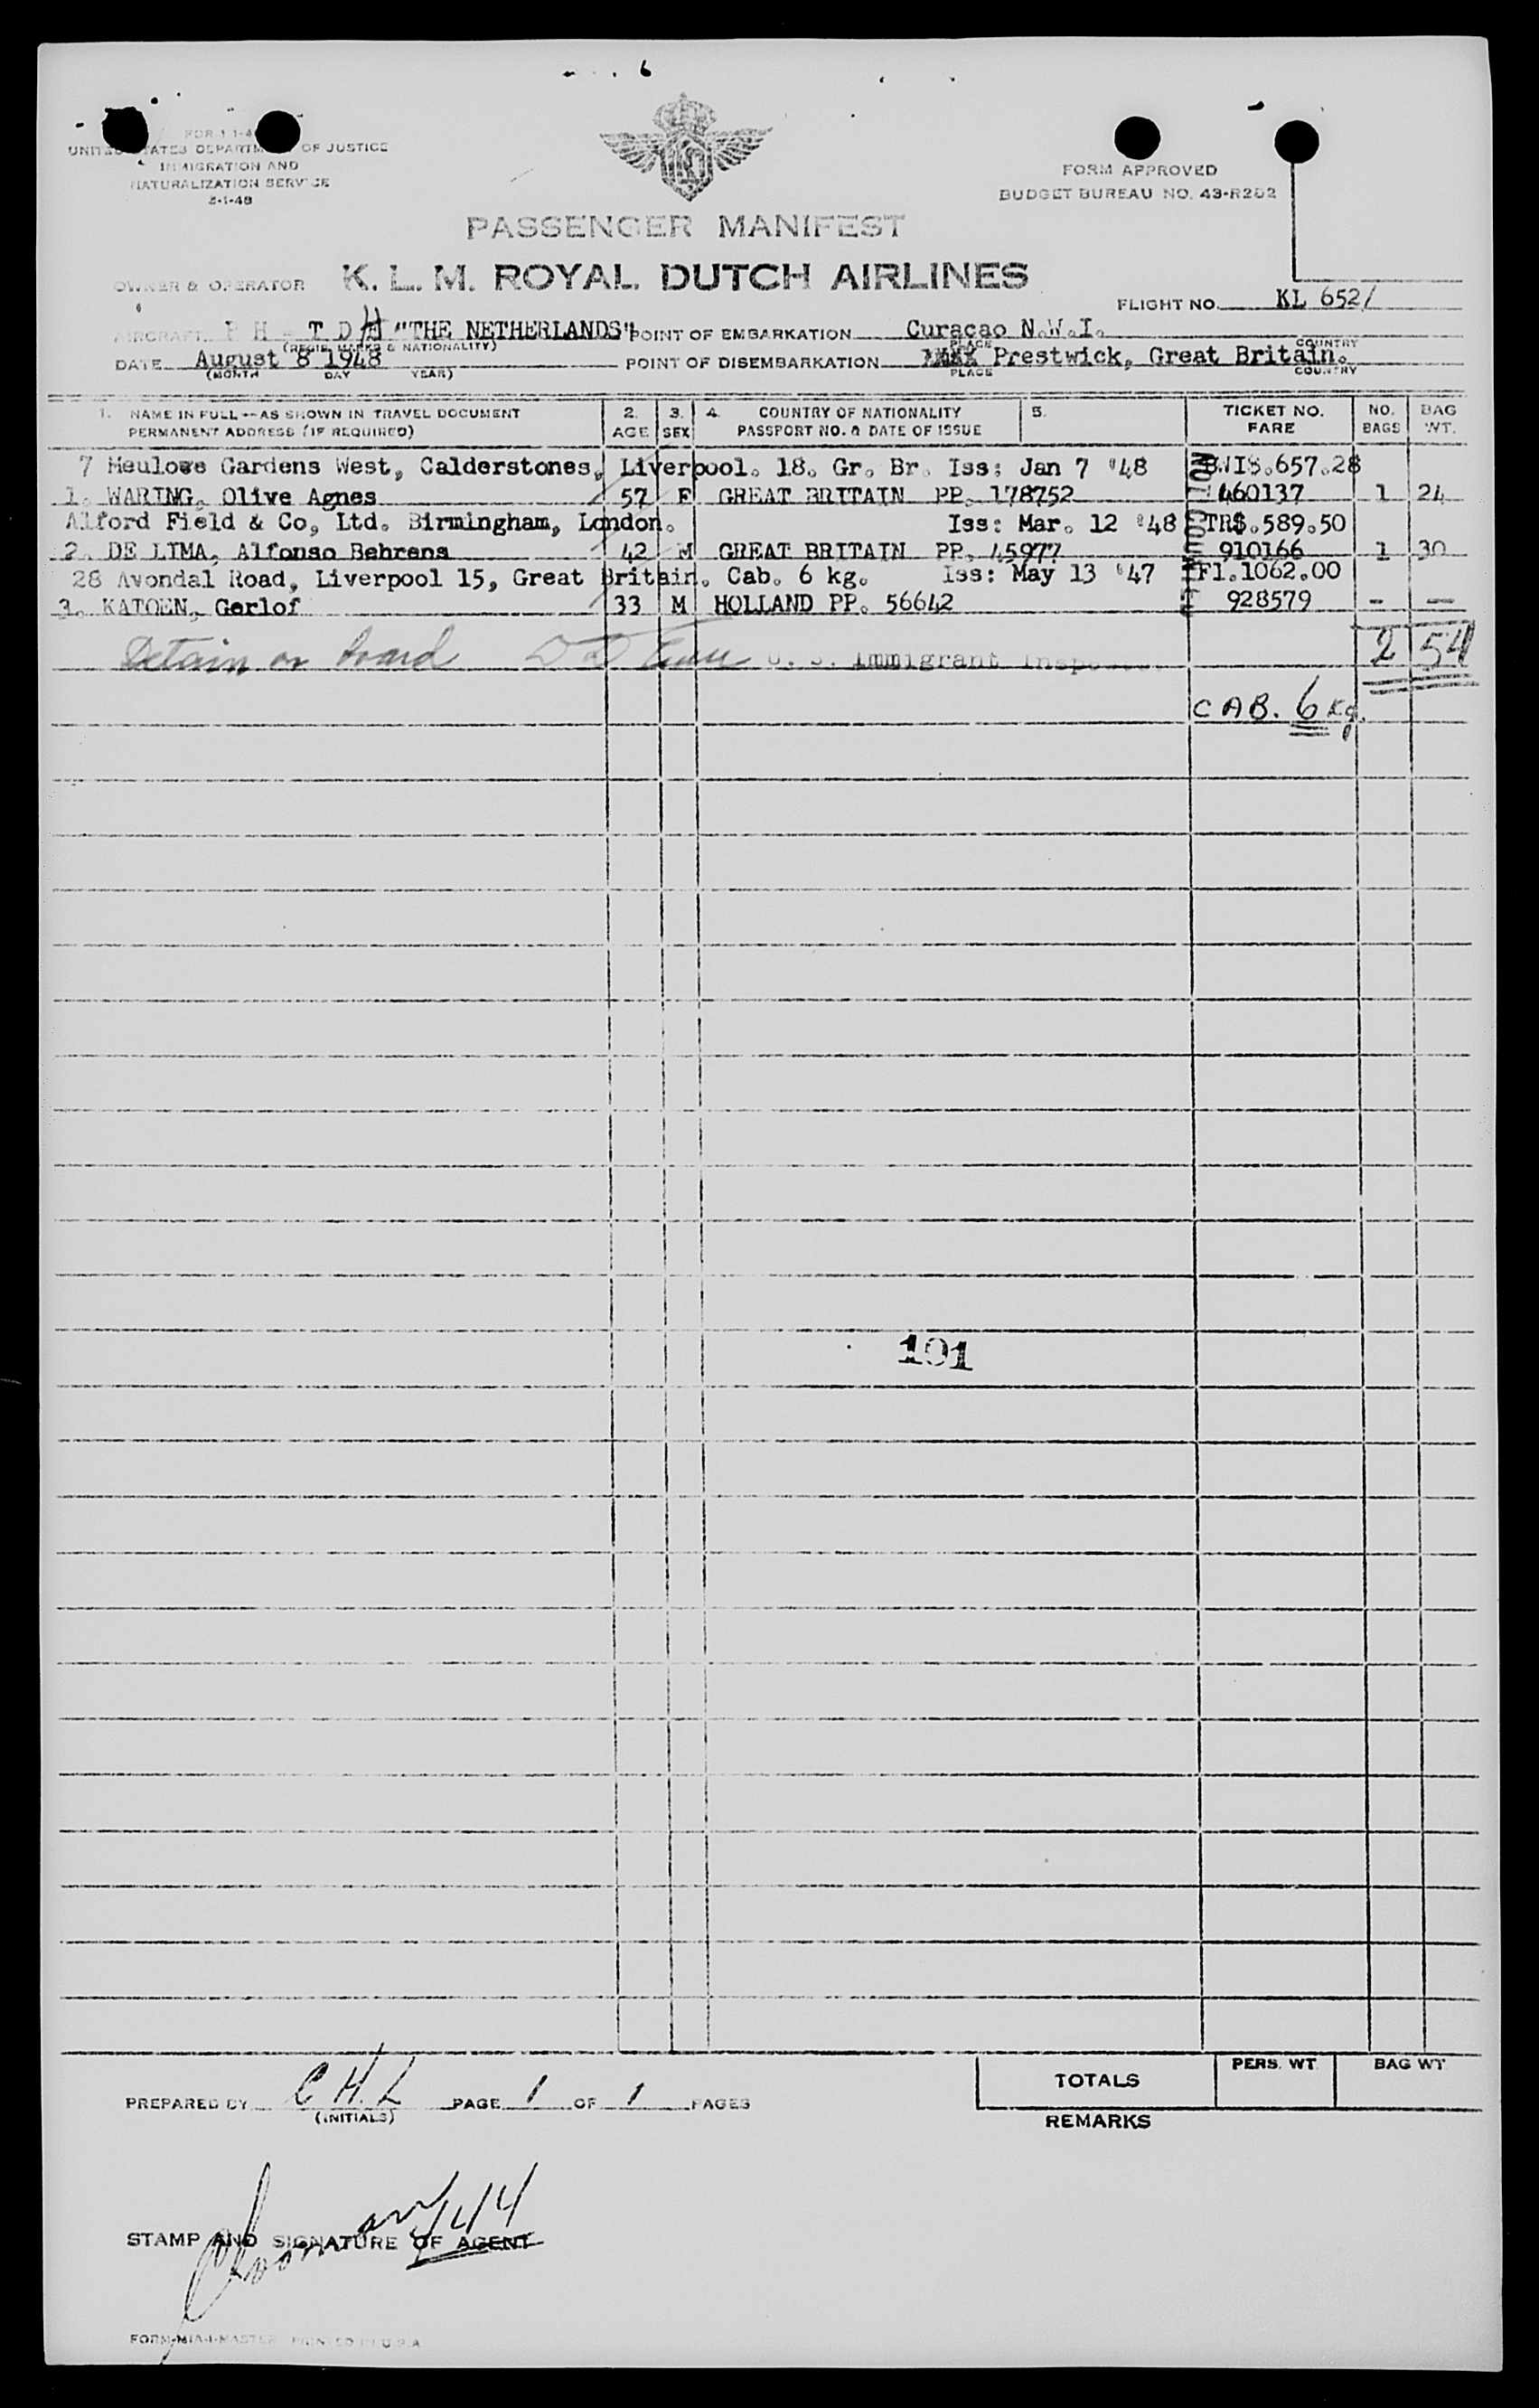 FORM I-4
UNITED STATES DEPARTMENT OF JUSTICE
IMMIGRATION AND
NATURALIZATION SERVICE
3-1-48
FORM APPROVED
BUDGET BUREAU NO. 43-R252
PASSENGER MANIFEST
OWNER & OPERATOR K. L. M. ROYAL DUTCH AIRLINES
FLIGHT NO. KL 652/
AIRCRAFT P H - T D H "THE NETHERLANDS" POINT OF EMBARKATION Curaçao N.W.I.
(REGIS. MARKS & NATIONALITY) PLACE COUNTRY
DATE August 8 1948 POINT OF DISEMBARKATION Prestwick, Great Britain.
(MONTH DAY YEAR) PLACE COUNTRY
1. NAME IN FULL--AS SHOWN IN TRAVEL DOCUMENT 2. 3. 4. COUNTRY OF NATIONALITY 5. TICKET NO. NO. BAG
PERMANENT ADDRESS (IF REQUIRED) AGE SEX PASSPORT NO. & DATE OF ISSUE FARE BAGS WT.
7 Heulowe Gardens West, Calderstones, Liverpool. 18. Gr. Br. Iss: Jan 7 '48 BWI$.657.28
1. WARING, Olive Agnes 57 F GREAT BRITAIN PP. 178752 460137 1 24
Alford Field & Co, Ltd. Birmingham, London. Iss: Mar. 12 '48 TR$.589.50
2. DE LIMA, Alfonso Behrens 42 M GREAT BRITAIN PP. 45977 910166 1 30
28 Avondal Road, Liverpool 15, Great Britain. Cab. 6 kg. Iss: May 13 '47 Fl.1062.00
3. KATOEN, Gerlof 33 M HOLLAND PP. 56642 928579 - -
Detain on board U. S. Immigrant Inspector 2 54
CAB. 6 Kg.
191
PERS. WT. BAG WT
TOTALS
PREPARED BY C H. L PAGE 1 OF 1 PAGES
(INITIALS)
REMARKS
STAMP AND SIGNATURE OF AGENT
PRINTED IN U.S.A